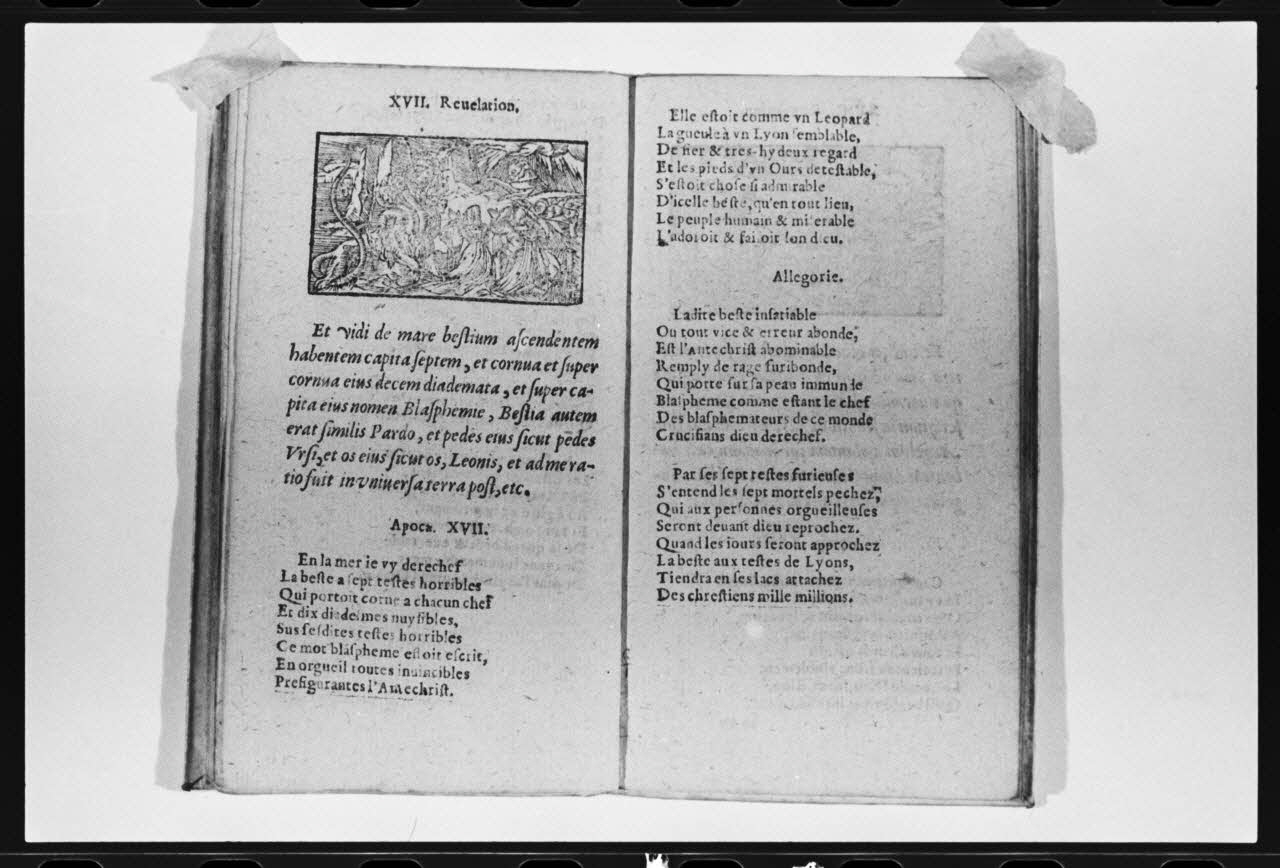 XVII. Reuelation.
Et vidi de mare beſtium aſcendentem
habentem capita ſeptem, et cornua et ſuper
cornua eius decem diademata, et ſuper ca-
pita eius nomen Blaſphemie, Beſtia autem
erat ſimilis Pardo, et pedes eius ſicut pedes
Vrſi, et os eius ſicut os, Leonis, et admera-
tio fuit in vniuerſa terra poſt, etc.
Apoca. XVII.
En la mer ie vy derechef
La beſte a ſept teſtes horribles
Qui portoit corne a chacun chef
Et dix diademes nuyſibles,
Sus ſeſdites teſtes horribles
Ce mot blaſpheme eſtoit eſcrit,
En orgueil toutes inuincibles
Prefigurantes l'Antechriſt.
Elle eſtoit comme vn Leopard
La gueule à vn Lyon ſemblable,
De fier & tres-hydeux regard
Et les pieds d'vn Ours deteſtable,
S'eſtoit choſe ſi admirable
D'icelle beſte, qu'en tout lieu,
Le peuple humain & miſerable
L'adoroit & faiſoit ſon dieu.
Allegorie.
Ladite beſte inſatiable
Ou tout vice & erreur abonde,
Eſt l'Antechriſt abominable
Remply de rage furibonde,
Qui porte ſur ſa peau immunde
Blaſpheme comme eſtant le chef
Des blaſphemateurs de ce monde
Crucifians dieu derechef.
Par ſes ſept teſtes furieuſes
S'entend les ſept mortels pechez,
Qui aux perſonnes orgueilleuſes
Seront deuant dieu reprochez.
Quand les iours ſeront approchez
La beſte aux teſtes de Lyons,
Tiendra en ſes lacs attachez
Des chreſtiens mille millions.